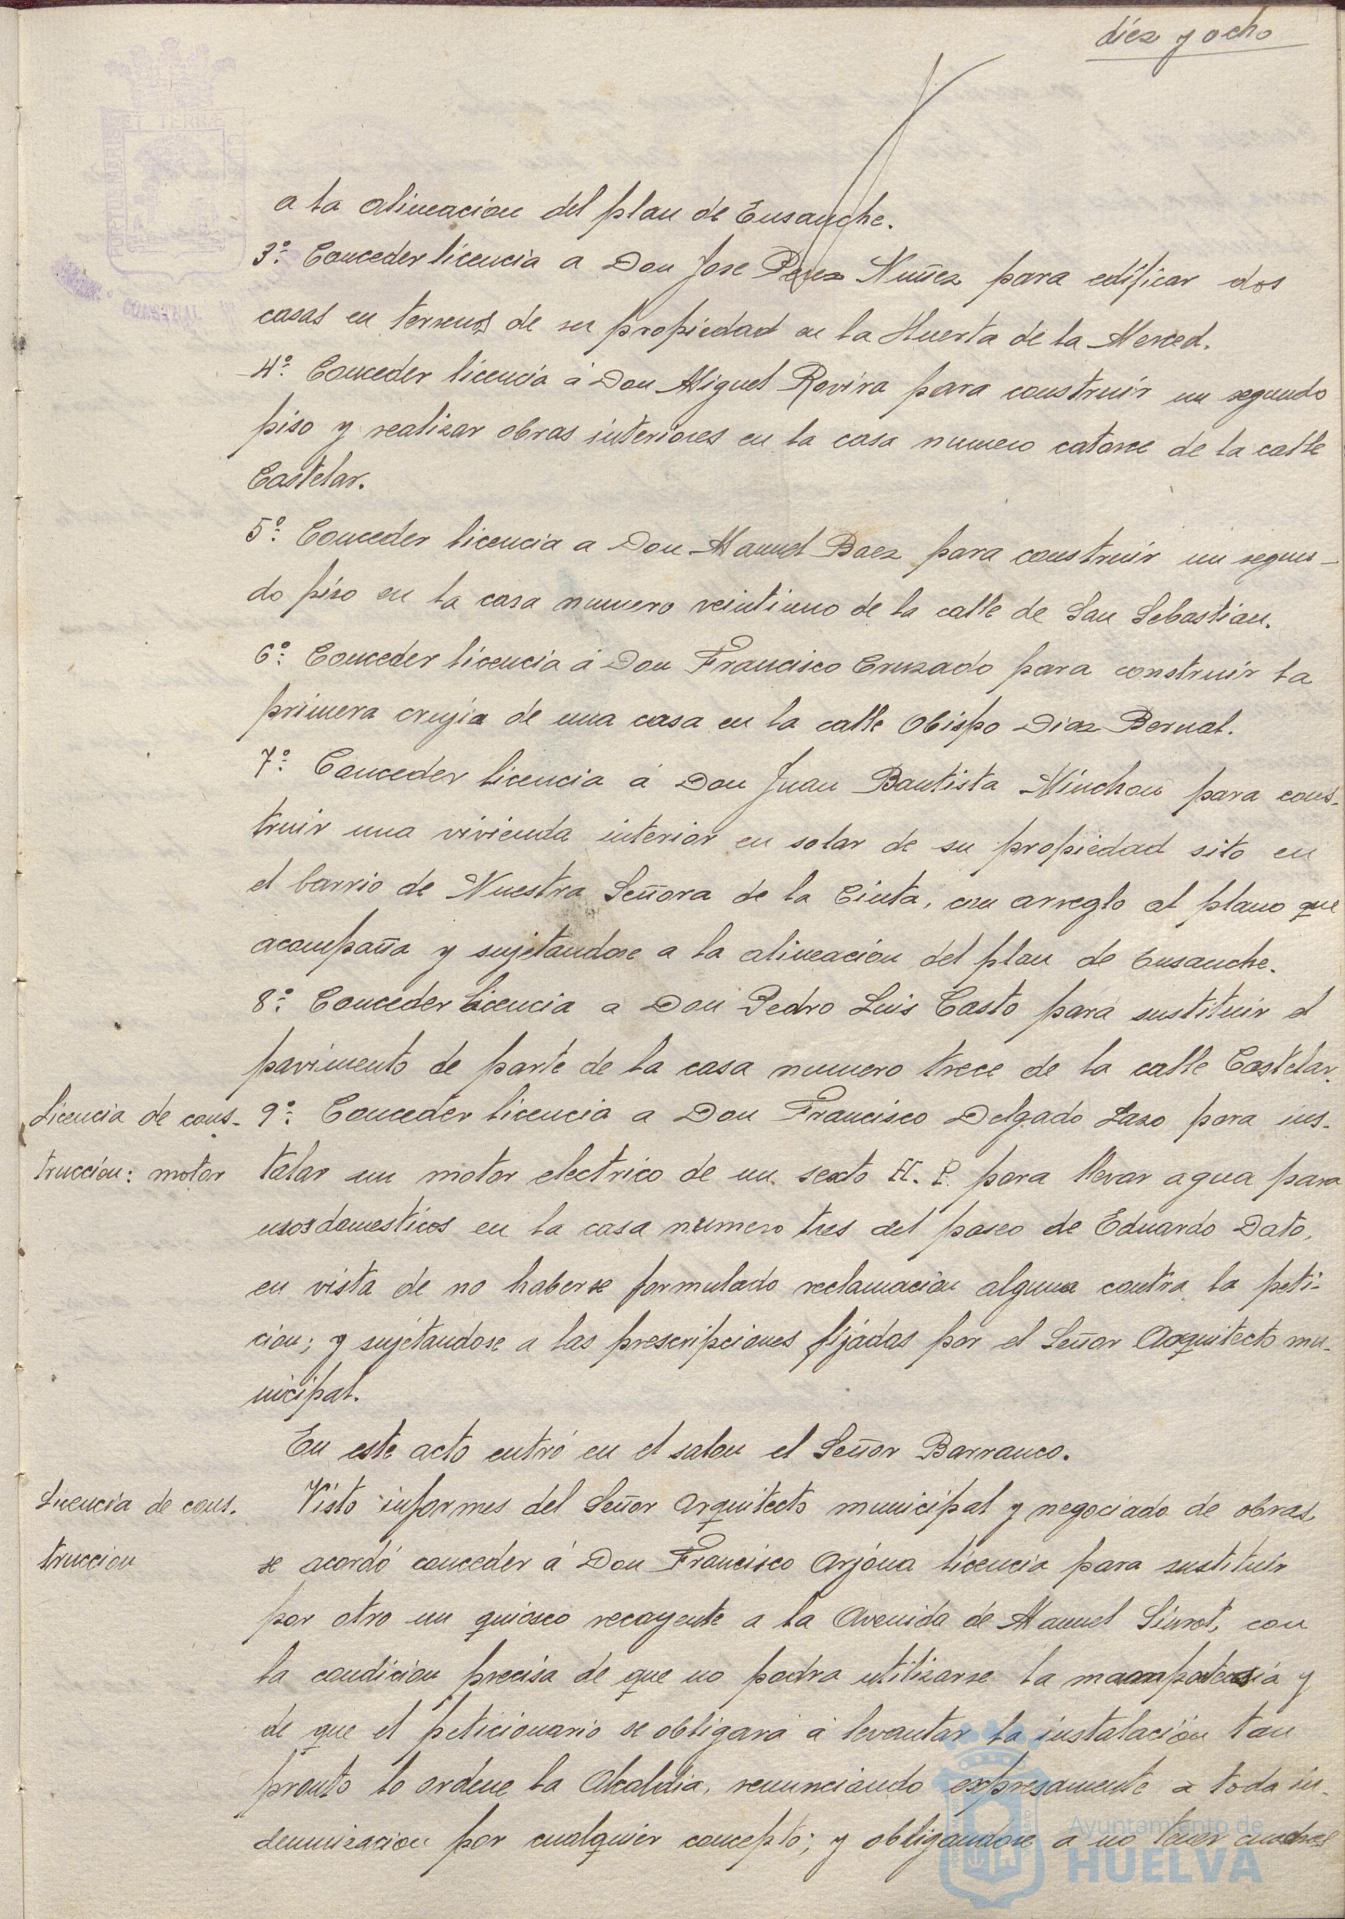 diez y ocho
a la alineacion del plan de Ensanche.
3º: Conceder licencia a Don Jose Perez Nuñez para edificar dos
casas en terrenos de su propiedad en la Huerta de la Merced.
4º: Conceder licencia á Don Miguel Rovira para construir un segundo
piso y realizar obras interiores en la casa numero catorce de la calle
Castelar.
5º: Conceder licencia a Don Manuel Baez para construir un segun-
do piso en la casa numero veintiuno de la calle de San Sebastian.
6º: Conceder licencia á Don Francisco Cruzado para construir la
primera crujia de una casa en la calle Obispo Diaz Bernal.
7º: Conceder licencia á Don Juan Bautista Minchon para cons-
truir una vivienda interior en solar de su propiedad sito en
el barrio de Nuestra Señora de la Cinta, con arreglo al plano que
acompaña y sujetandose a la alineación del plan de Ensanche.
8º: Conceder licencia a Don Pedro Luis Casto para sustituir el
pavimento de parte de la casa numero trece de la calle Castelar.
Licencia de cons-
trucción: motor
9º: Conceder licencia a Don Francisco Delgado Lazo para ins-
talar un motor electrico de un sexto H. P. para llevar agua para
usos domesticos en la casa numero tres del paseo de Eduardo Dato,
en vista de no haberse formulado reclamacion alguna contra la peti-
cion; y sujetandose a las prescripciones fijadas por el Señor Arquitecto mu-
nicipal.
En este acto entró en el salon el Señor Barranco.
Licencia de cons-
truccion
Visto informes del Señor Arquitecto municipal y negociado de obras,
se acordó conceder á Don Francisco Arjona licencia para sustituir
por otro un quiosco recayente a la Avenida de Manuel Siurot, con
la condicion precisa de que no podra utilizarse la mampostería y
de que el peticionario se obligará á levantar la instalación tan
pronto lo ordene la Alcaldia, renunciando expresamente a toda in-
demnizacion por cualquier concepto; y obligandose a no tener
Ayuntamiento de
HUELVA